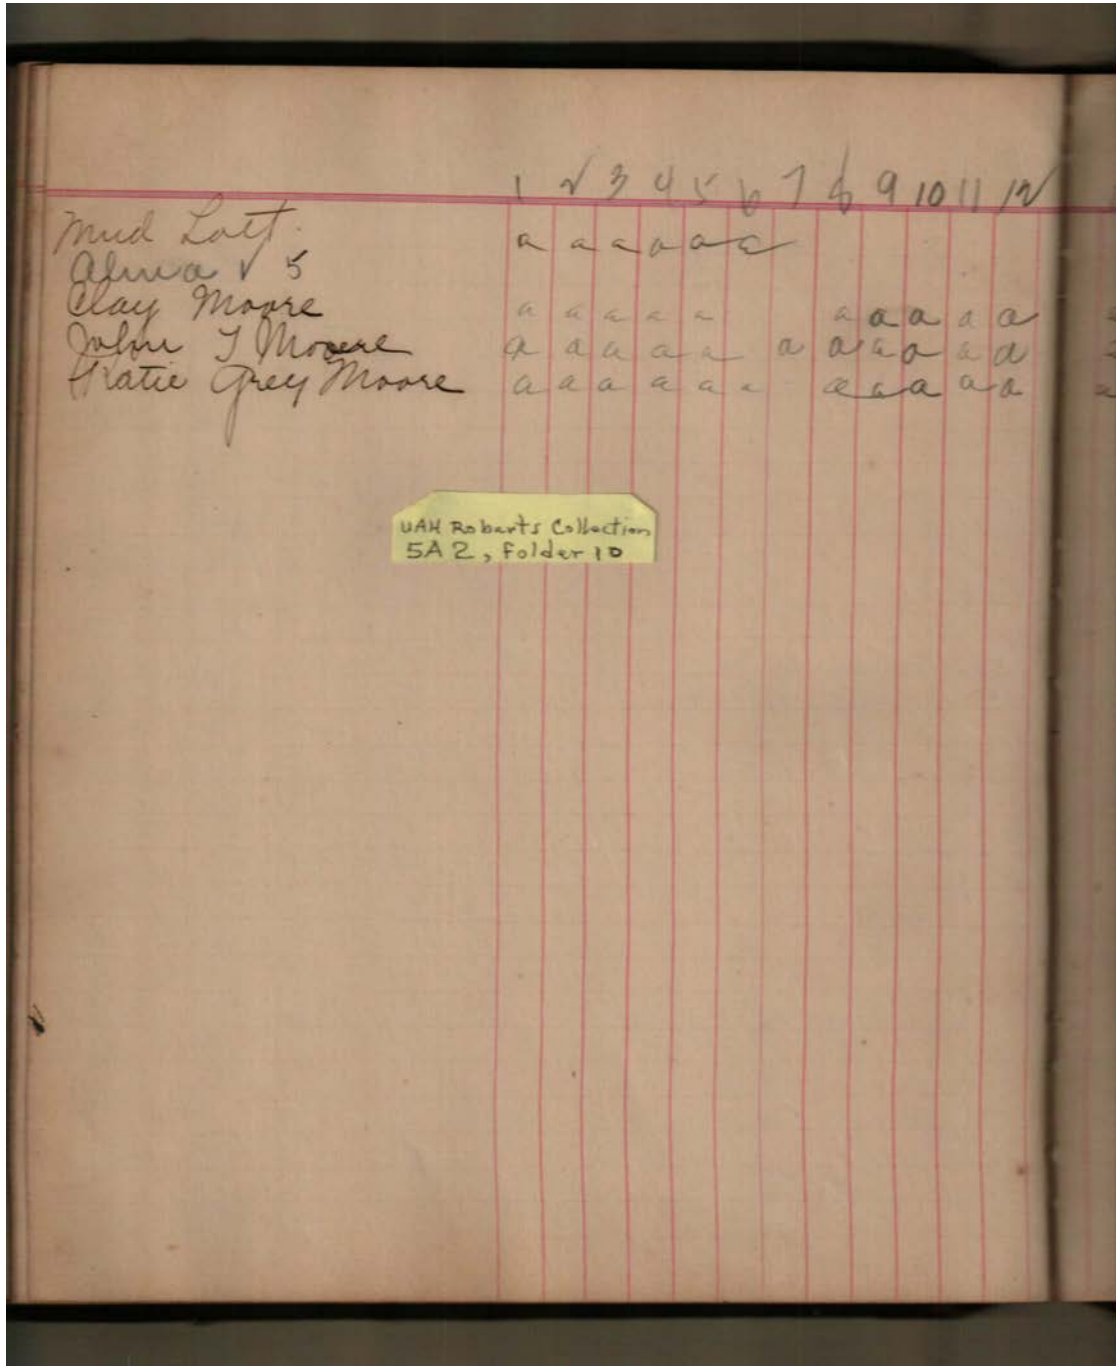 1 2 3 4 5 6 7 8 9 10 11 12
Mud Lott. a a a a a a
Alma √ 5
Clay Moore a a a a a a a a a a
John T Moore a a a a a a a a a a a
Katie Grey Moore a a a a a a a a a a a
UAH Roberts Collection
5A2, Folder 10